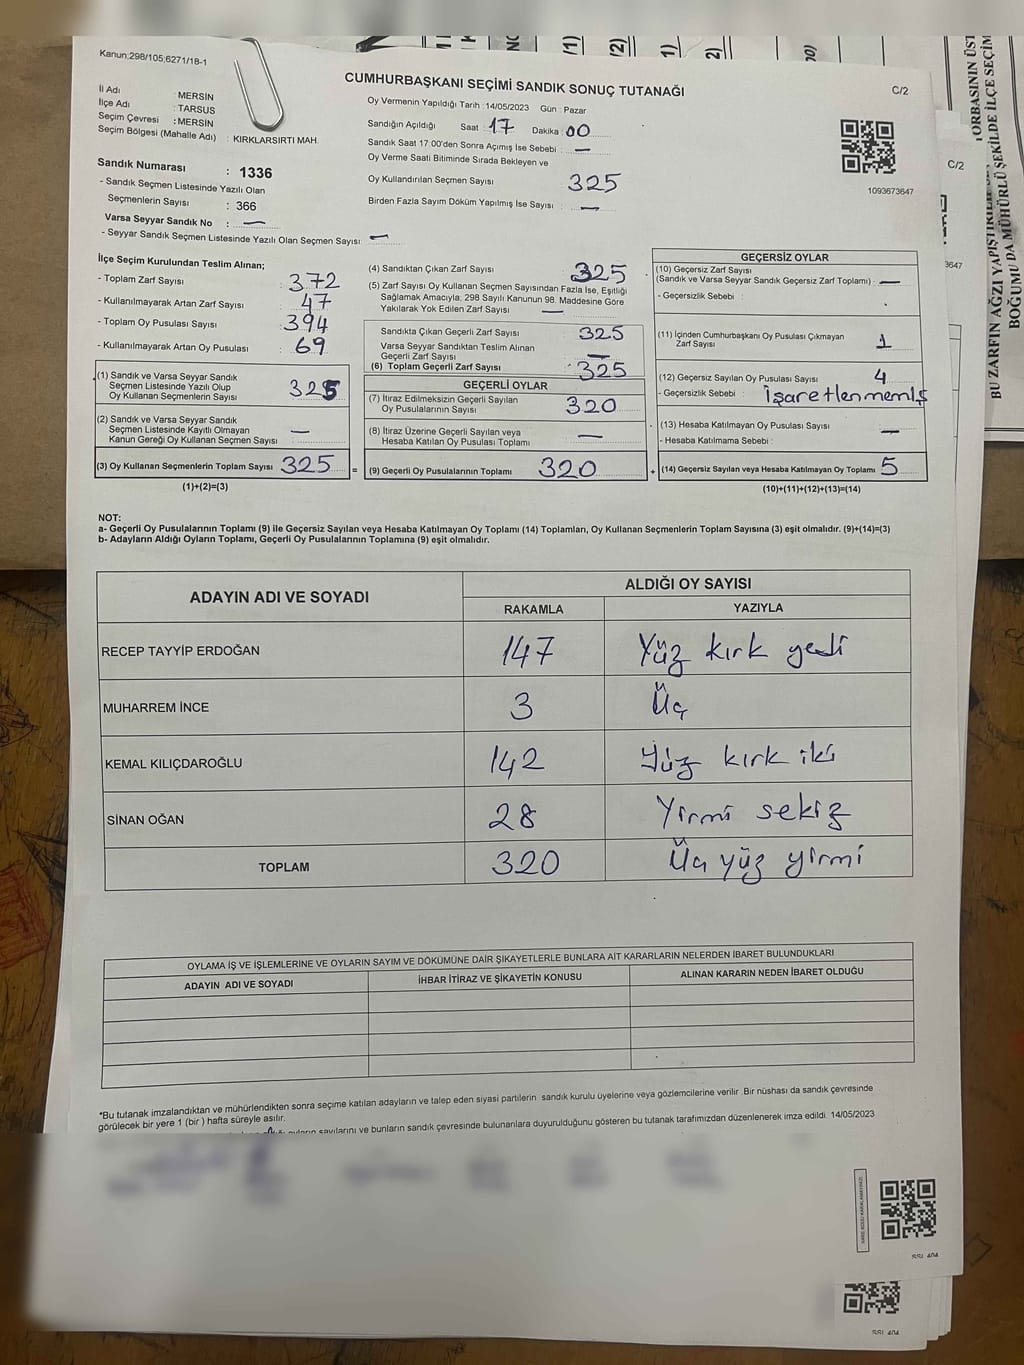 Kanun;298/105;6271/18-1
CUMHURBAŞKANI SEÇİMİ SANDIK SONUÇ TUTANAĞI
C/2
İl Adı : MERSİN
İlçe Adı : TARSUS
Seçim Çevresi : MERSİN
Seçim Bölgesi (Mahalle Adı) : KIRKLARSIRTI MAH.
Sandık Numarası : 1336
- Sandık Seçmen Listesinde Yazılı Olan
Seçmenlerin Sayısı : 366
Varsa Seyyar Sandık No : —
- Seyyar Sandık Seçmen Listesinde Yazılı Olan Seçmen Sayısı: —
Oy Vermenin Yapıldığı Tarih : 14/05/2023 Gün : Pazar
Sandığın Açıldığı Saat : 17 Dakika : 00
Sandık Saat 17.00'den Sonra Açımış İse Sebebi : —
Oy Verme Saati Bitiminde Sırada Bekleyen ve
Oy Kullandırılan Seçmen Sayısı 325
Birden Fazla Sayım Döküm Yapılmış İse Sayısı : —
1093673647
İlçe Seçim Kurulundan Teslim Alınan;
- Toplam Zarf Sayısı : 372
- Kullanılmayarak Artan Zarf Sayısı : 47
- Toplam Oy Pusulası Sayısı : 394
- Kullanılmayarak Artan Oy Pusulası : 69
(1) Sandık ve Varsa Seyyar Sandık
Seçmen Listesinde Yazılı Olup
Oy Kullanan Seçmenlerin Sayısı 325
(2) Sandık ve Varsa Seyyar Sandık
Seçmen Listesinde Kayıtlı Olmayan
Kanun Gereği Oy Kullanan Seçmen Sayısı : —
(3) Oy Kullanan Seçmenlerin Toplam Sayısı 325
(1)+(2)=(3)
(4) Sandıktan Çıkan Zarf Sayısı 325
(5) Zarf Sayısı Oy Kullanan Seçmen Sayısından Fazla İse, Eşitliği
Sağlamak Amacıyla, 298 Sayılı Kanunun 98. Maddesine Göre
Yakılarak Yok Edilen Zarf Sayısı : —
Sandıkta Çıkan Geçerli Zarf Sayısı 325
Varsa Seyyar Sandıktan Teslim Alınan
Geçerli Zarf Sayısı —
(6) Toplam Geçerli Zarf Sayısı 325
GEÇERLİ OYLAR
(7) İtiraz Edilmeksizin Geçerli Sayılan
Oy Pusulalarının Sayısı : 320
(8) İtiraz Üzerine Geçerli Sayılan veya
Hesaba Katılan Oy Pusulası Toplamı : —
= (9) Geçerli Oy Pusulalarının Toplamı 320
GEÇERSİZ OYLAR
(10) Geçersiz Zarf Sayısı
(Sandık ve Varsa Seyyar Sandık Geçersiz Zarf Toplamı) : —
- Geçersizlik Sebebi :
(11) İçinden Cumhurbaşkanı Oy Pusulası Çıkmayan
Zarf Sayısı : 1
(12) Geçersiz Sayılan Oy Pusulası Sayısı 4
- Geçersizlik Sebebi : işaretlenmemiş
(13) Hesaba Katılmayan Oy Pusulası Sayısı —
- Hesaba Katılmama Sebebi :
+ (14) Geçersiz Sayılan veya Hesaba Katılmayan Oy Toplamı 5
(10)+(11)+(12)+(13)=(14)
NOT:
a- Geçerli Oy Pusulalarının Toplamı (9) ile Geçersiz Sayılan veya Hesaba Katılmayan Oy Toplamı (14) Toplamları, Oy Kullanan Seçmenlerin Toplam Sayısına (3) eşit olmalıdır. (9)+(14)=(3)
b- Adayların Aldığı Oyların Toplamı, Geçerli Oy Pusulalarının Toplamına (9) eşit olmalıdır.
ADAYIN ADI VE SOYADI ALDIĞI OY SAYISI
RAKAMLA YAZIYLA
RECEP TAYYİP ERDOĞAN 147 Yüz kırk yedi
MUHARREM İNCE 3 Üç
KEMAL KILIÇDAROĞLU 142 Yüz kırk iki
SİNAN OĞAN 28 Yirmi sekiz
TOPLAM 320 Üç yüz yirmi
OYLAMA İŞ VE İŞLEMLERİNE VE OYLARIN SAYIM VE DÖKÜMÜNE DAİR ŞİKAYETLERLE BUNLARA AİT KARARLARIN NELERDEN İBARET BULUNDUKLARI
ADAYIN ADI VE SOYADI İHBAR İTİRAZ VE ŞİKAYETİN KONUSU ALINAN KARARIN NEDEN İBARET OLDUĞU
*Bu tutanak imzalandıktan ve mühürlendikten sonra seçime katılan adayların ve talep eden siyasi partilerin sandık kurulu üyelerine veya gözlemcilerine verilir. Bir nüshası da sandık çevresinde
görülecek bir yere 1 (bir ) hafta süreyle asılır.
sayılarını ve bunların sandık çevresinde bulunanlara duyurulduğunu gösteren bu tutanak tarafımızdan düzenlenerek imza edildi. 14/05/2023
C/2
3647
BU ZARFIN AĞZI YAPIŞTIRILIP
BOĞUMU DA MÜHÜRLÜ ŞEKİLDE İLÇE SEÇİM
TORBASININ ÜST